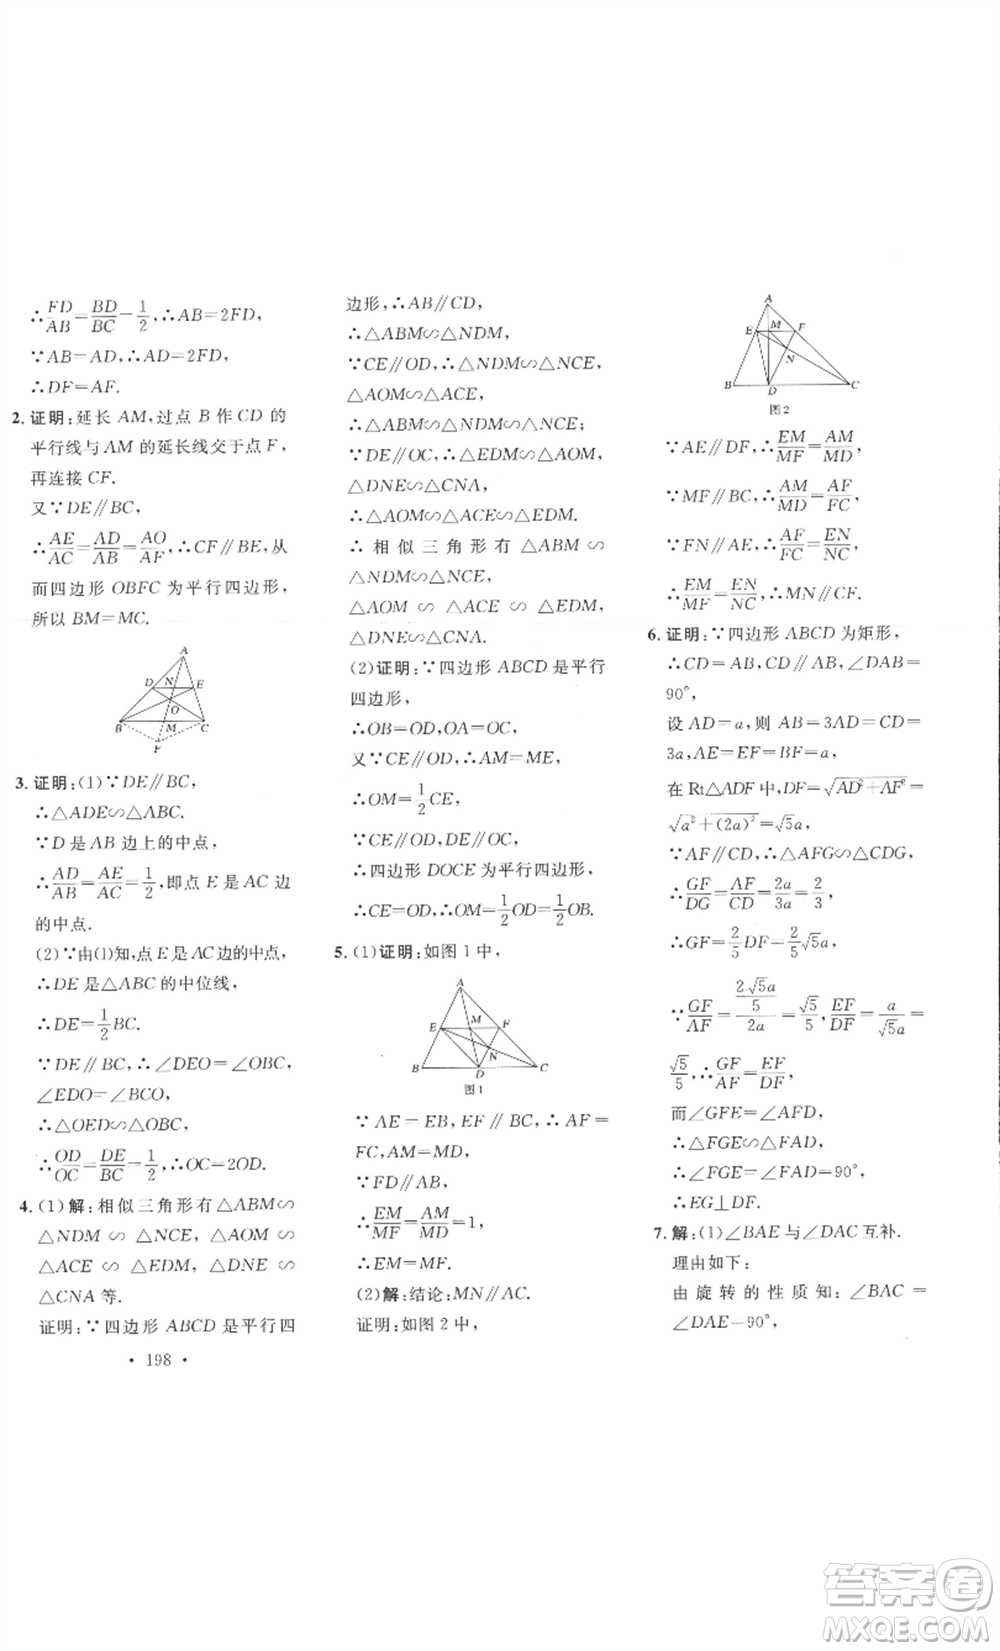 ∴FD/AB=BD/BC=1/2,∴AB=2FD,
∵AB=AD,∴AD=2FD,
∴DF=AF.
2. 证明:延长 AM,过点 B 作 CD 的
平行线与 AM 的延长线交于点 F,
再连接 CF.
又∵DE∥BC,
∴AE/AC=AD/AB=AO/AF,∴CF∥BE,从
而四边形 OBFC 为平行四边形,
所以 BM=MC.
A
D N E
O
B M C
F
3. 证明:(1)∵DE∥BC,
∴△ADE∽△ABC.
∵D 是 AB 边上的中点,
∴AD/AB=AE/AC=1/2,即点 E 是 AC 边
的中点.
(2)∵由(1)知,点 E 是 AC 边的中点,
∴DE 是△ABC 的中位线,
∴DE=1/2BC.
∵DE∥BC,∴∠DEO=∠OBC,
∠EDO=∠BCO,
∴△OED∽△OBC,
∴OD/OC=DE/BC=1/2,∴OC=2OD.
4. (1)解:相似三角形有△ABM∽
△NDM ∽ △NCE, △AOM ∽
△ACE ∽ △EDM, △DNE ∽
△CNA 等.
证明:∵四边形 ABCD 是平行四
· 198 ·
边形,∴AB∥CD,
∴△ABM∽△NDM.
∵CE∥OD,∴△NDM∽△NCE,
△AOM∽△ACE,
∴△ABM∽△NDM∽△NCE;
∵DE∥OC,∴△EDM∽△AOM,
△DNE∽△CNA,
∴△AOM∽△ACE∽△EDM.
∴相似三角形有△ABM∽
△NDM ∽ △NCE,
△AOM ∽ △ACE ∽ △EDM,
△DNE∽△CNA.
(2)证明:∵四边形 ABCD 是平行
四边形,
∴OB=OD,OA=OC,
又∵CE∥OD,∴AM=ME,
∴OM=1/2CE,
∵CE∥OD,DE∥OC,
∴四边形 DOCE 为平行四边形,
∴CE=OD,∴OM=1/2OD=1/2OB.
5. (1)证明:如图 1 中,
A
E M F
N
B D C
图1
∵AE=EB,EF∥BC,∴AF=
FC,AM=MD,
∵FD∥AB,
∴EM/MF=AM/MD=1,
∴EM=MF.
(2)解:结论:MN∥AC.
证明:如图 2 中,
A
E M F
N
B D C
图2
∵AE∥DF,∴EM/MF=AM/MD,
∵MF∥BC,∴AM/MD=AF/FC,
∵FN∥AE,∴AF/FC=EN/NC,
∴EM/MF=EN/NC,∴MN∥CF.
6. 证明:∵四边形 ABCD 为矩形,
∴CD=AB,CD∥AB,∠DAB=
90°,
设 AD=a,则 AB=3AD=CD=
3a,AE=EF=BF=a,
在 Rt△ADF 中,DF=√(AD²+AF²)=
√(a²+(2a)²)=√5a,
∵AF∥CD,∴△AFG∽△CDG,
∴GF/DG=AF/CD=2a/3a=2/3,
∴GF=2/5DF=2/5√5a,
∵GF/AF=(2√5a/5)/2a=√5/5,EF/DF=a/√5a=
√5/5,∴GF/AF=EF/DF,
而∠GFE=∠AFD,
∴△FGE∽△FAD,
∴∠EGF=∠FAD=90°,
∴EG⊥DF.
7. 解:(1)∠BAE 与∠DAC 互补.
理由如下:
由旋转的性质知:∠BAC=
∠DAE=90°,
答案卷
MXQE.COM